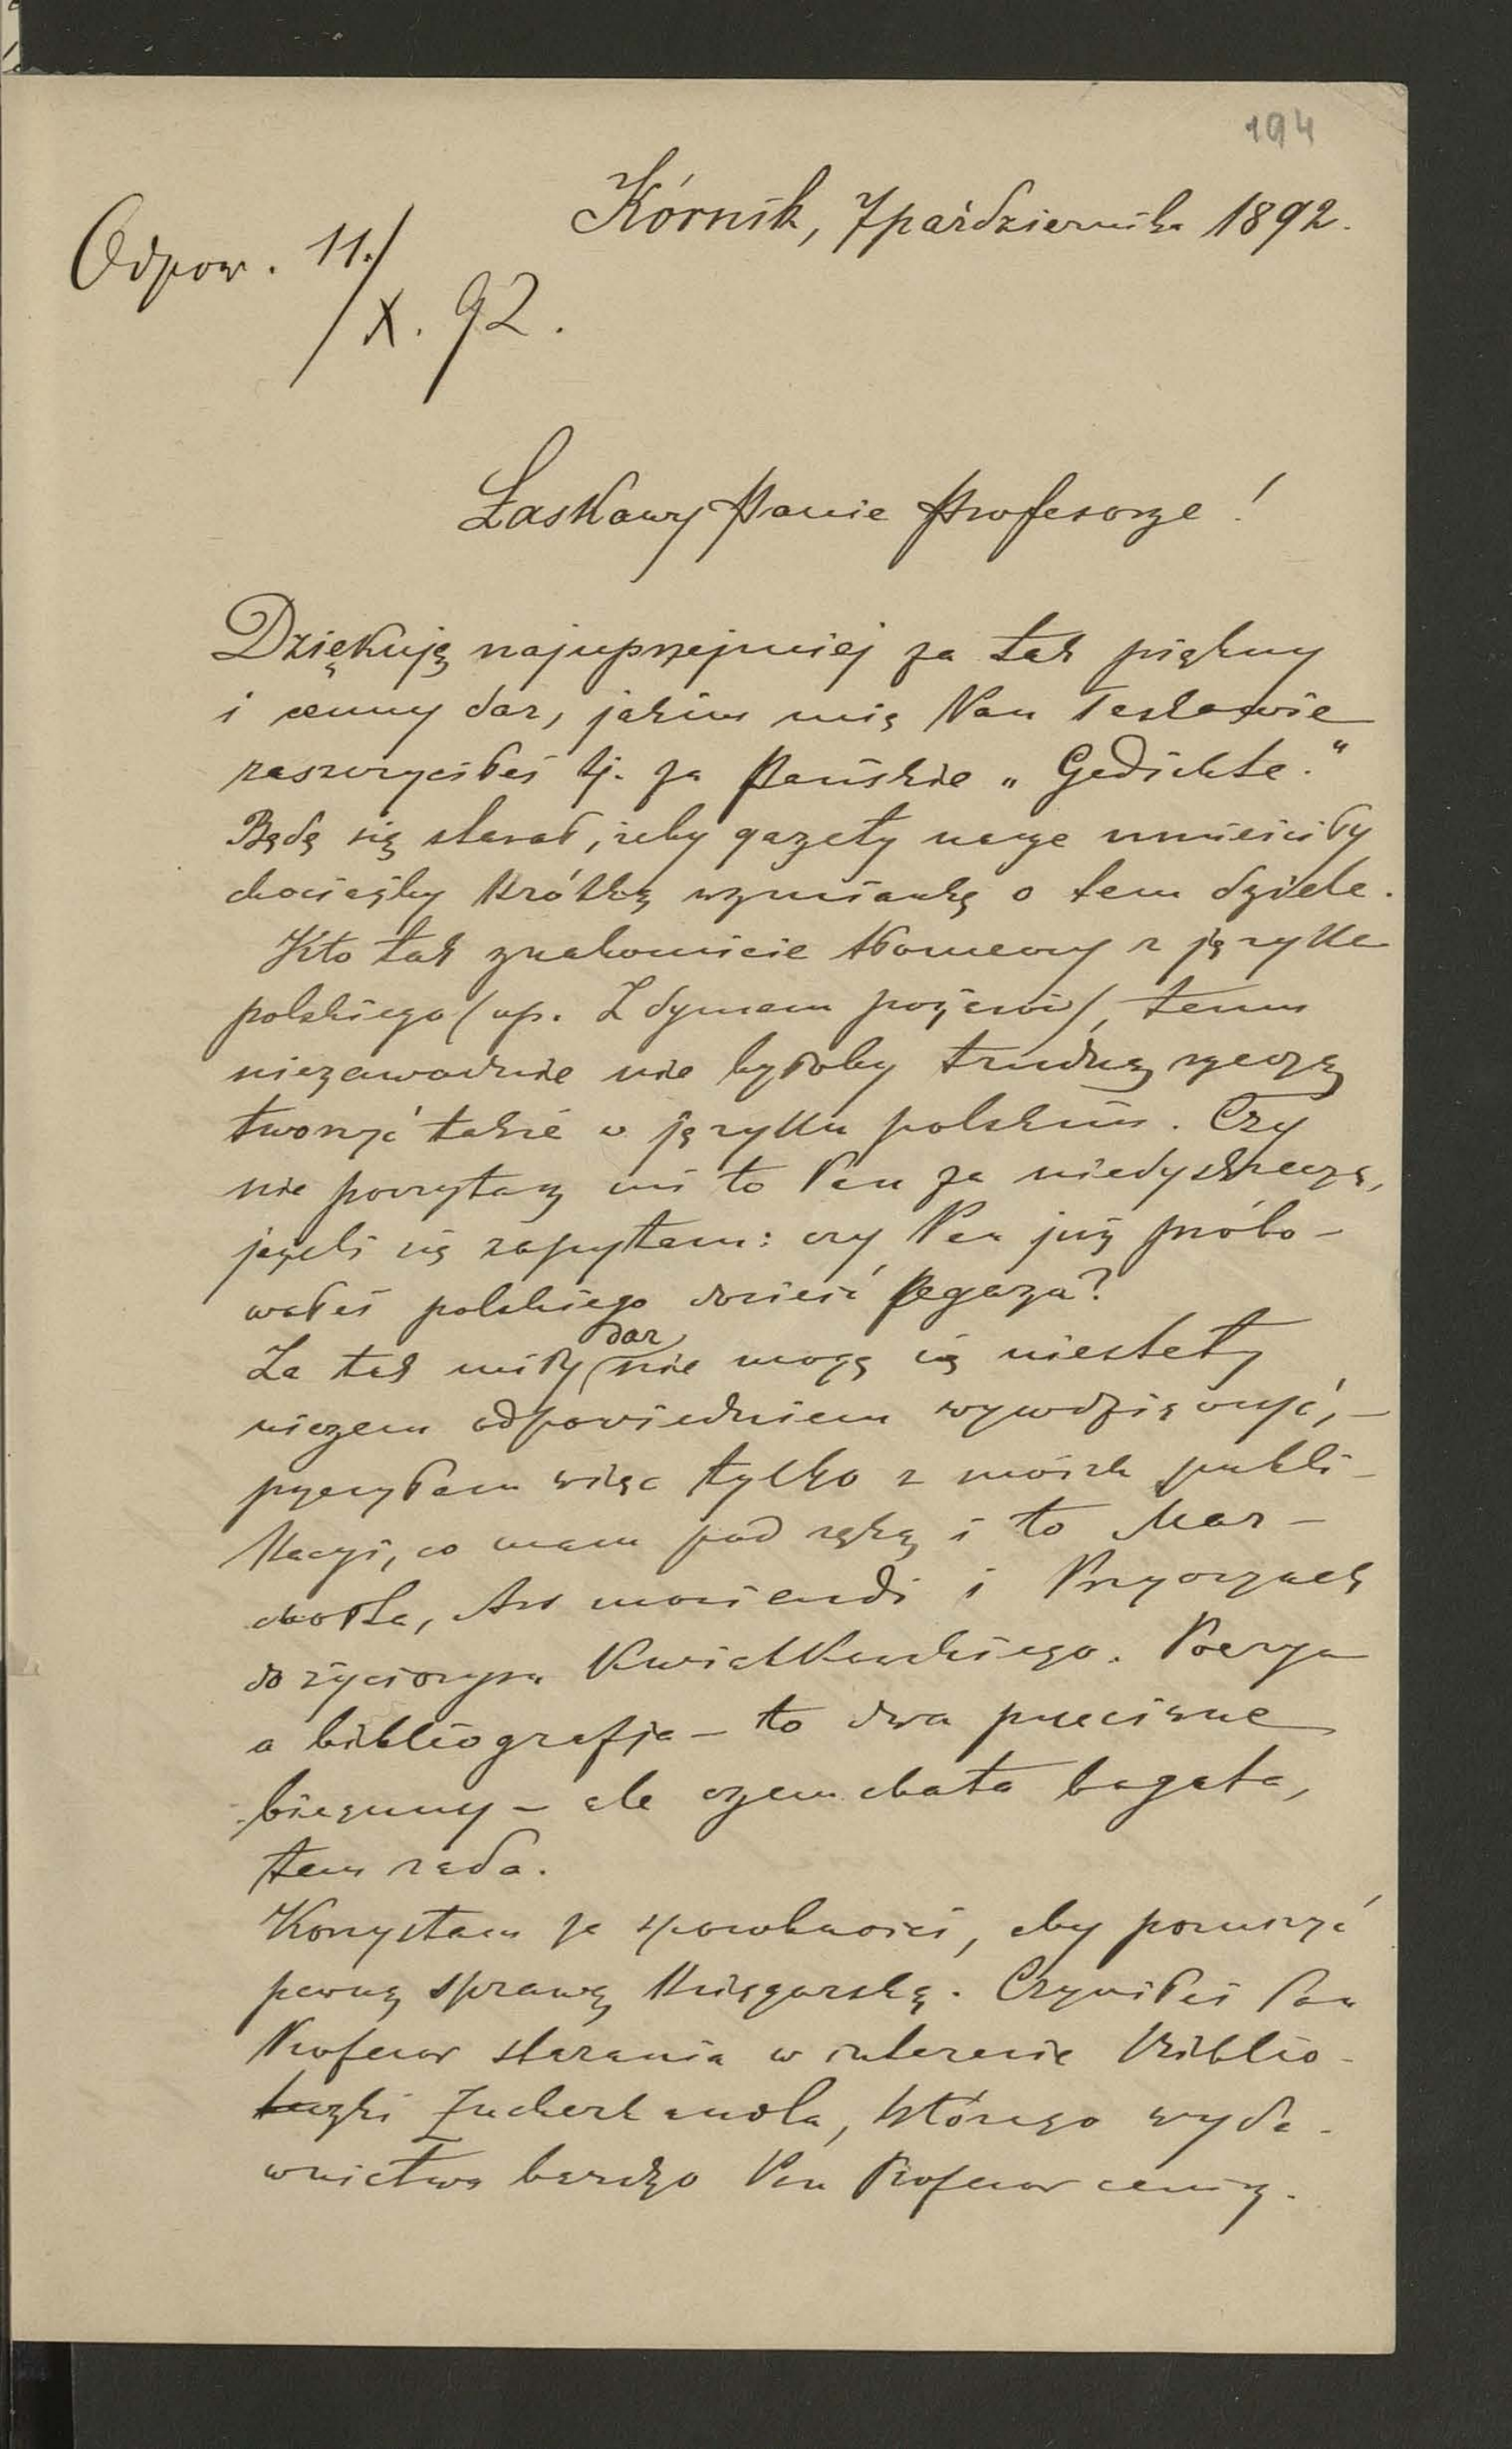 194
Kórnik, 7 października 1892.
Odpow. 11./
/X. 92.
Łaskawy Panie Profesorze!
Dziękuję najuprzejmiej za tak piękny
i cenny dar, jakim mię Pan łaskawie
zaszczyciłeś tj. za Pańskie „Gedichte."
Będę się starał, żeby gazety nasze umieściły
chociażby krótką wzmiankę o tem dziele.
Kto tak znakomicie tłomaczy z języka
polskiego (np. Z dymem pożarów), temu
niezawodnie nie byłoby trudną rzeczą
tworzyć także w języku polskim. Czy
nie poczytasz mi to Pan za niedyskrecyą,
jeżeli się zapytam: czy Pan już próbo-
wałeś polskiego dosieść Pegaza?
Za tak miły dar nie mogę się niestety
niczem odpowiedniem wywdzięczyć, –
przesyłam więc tylko z moich publi-
kacyi, co mam pod ręką i to Mar-
chołta, Ars moriendi i Przyczynek
do życiorysu Kwiatkowskiego. Poezya
a bibliografja – to dwa przeciwne
bieguny – ale czem chata bogata,
tem rada.
Korzystam ze sposobności, aby poruszyć
pewną sprawę księgarską. Czyniłeś Pan
Profesor starania w interesie Biblio-
teczki Zuckerkandla, którego wyda-
wnictwa bardzo Pan Profesor cenisz.